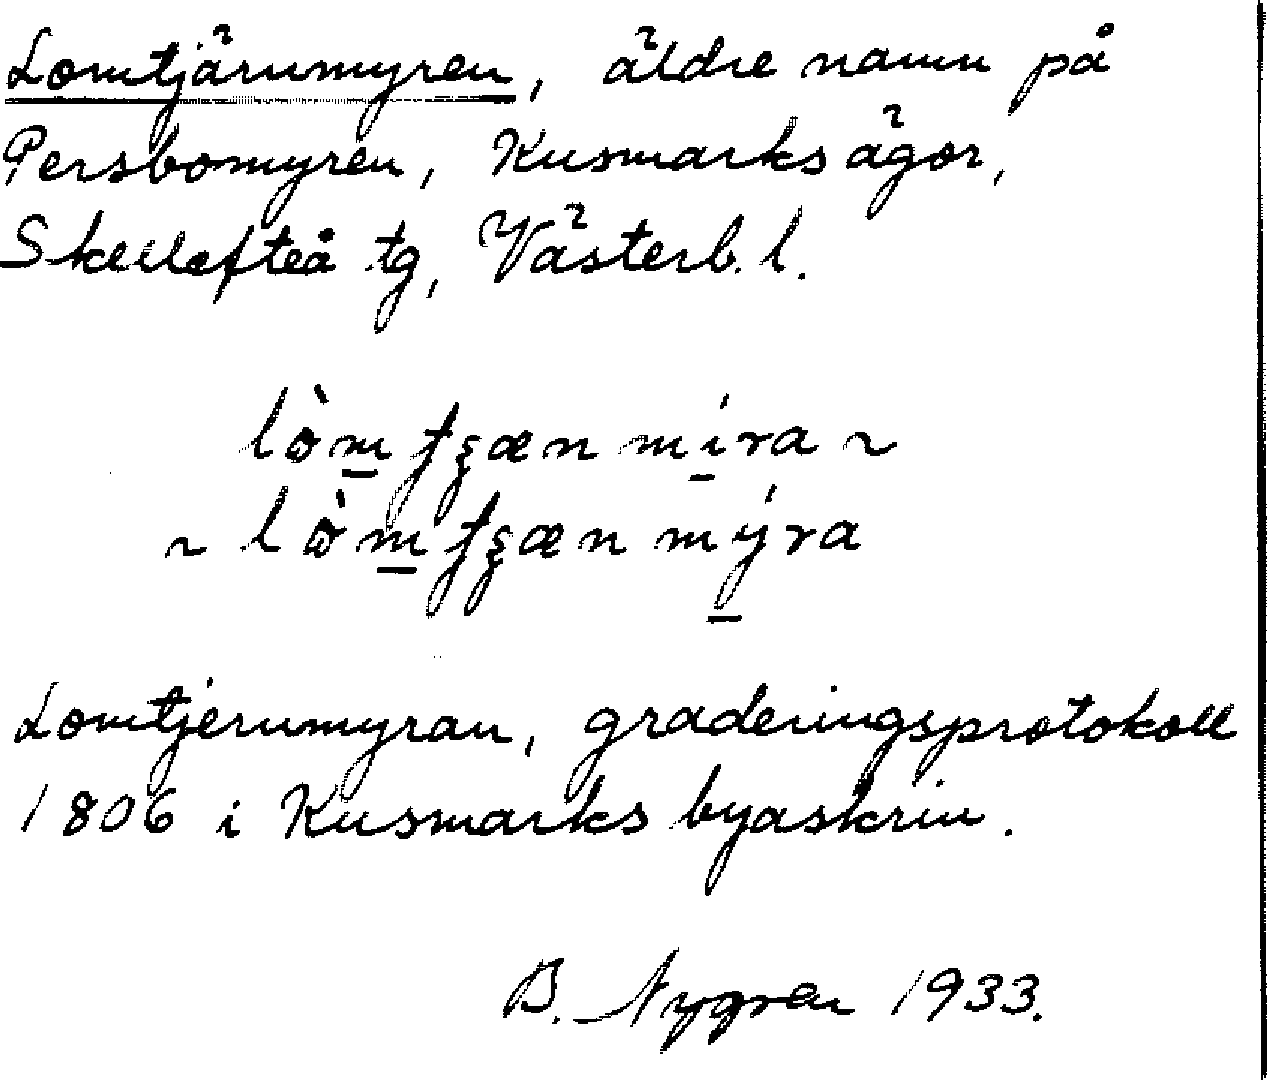 Lomtjärnmyren, äldre namn på
Persbomyren, Kusmarks ägor,
Skellefteå tg, Västerb. l.
lòm̲ʈʂæn mí̲ra ~
~ lò̈m̲ʈʂæn mý̲ra
Lomtjernmyran, graderingsprotokoll
1806 i Kusmarks byaskrin.
B. Nygren 1933.